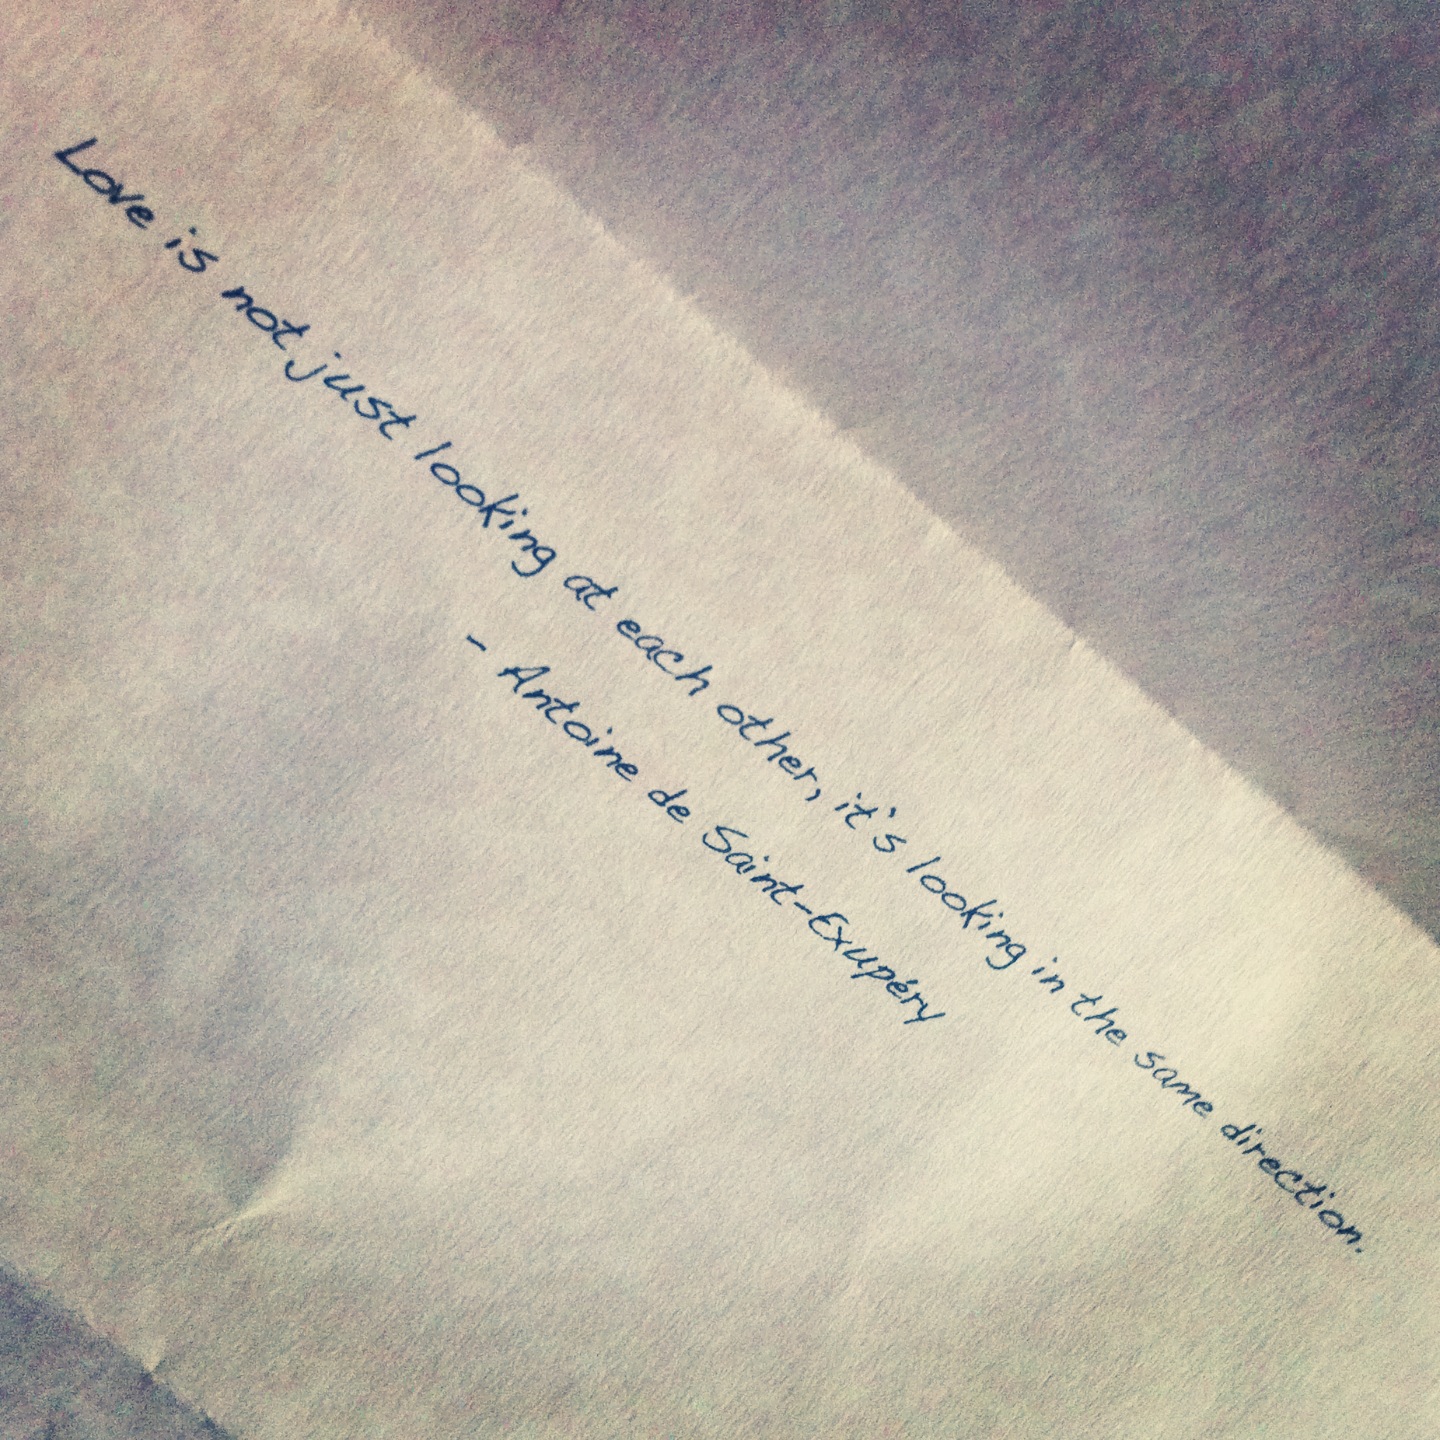 Love is not just looking at each other, it's looking in the same direction.
- Antoine de Saint-Exupéry